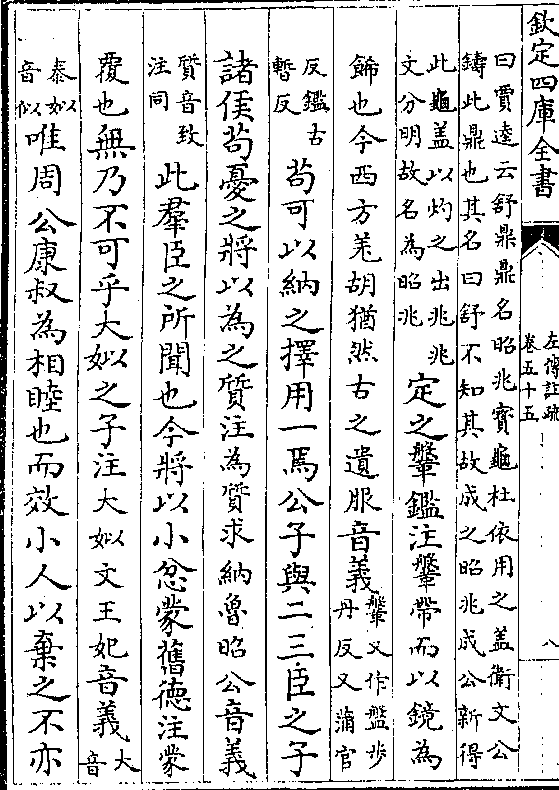 欽定四庫全書
左傳註疏
卷五十五
八
曰賈逵云舒鼎鼎名昭兆寳龜杜依用之盖衛文公
鑄此鼎也其名曰舒不知其故成之昭兆成公新得
此龜盖以灼之出兆兆
文分明故名為昭兆
定之鞶鑑注鞶帶而以鏡為
飾也今西方羗胡猶然古之遺服音義
鞶又作盤步
丹反又蒲官
反鑑古
暫反
苟可以納之擇用一焉公子與二三臣之子
諸侯苟憂之將以為之質注為質求納魯昭公音義
質音致
注同
此羣臣之所聞也今將以小忿蒙舊德注蒙
覆也無乃不可乎大姒之子注大姒文王妃音義
大
音
泰姒以
音似
唯周公康叔為相睦也而效小人以棄之不亦